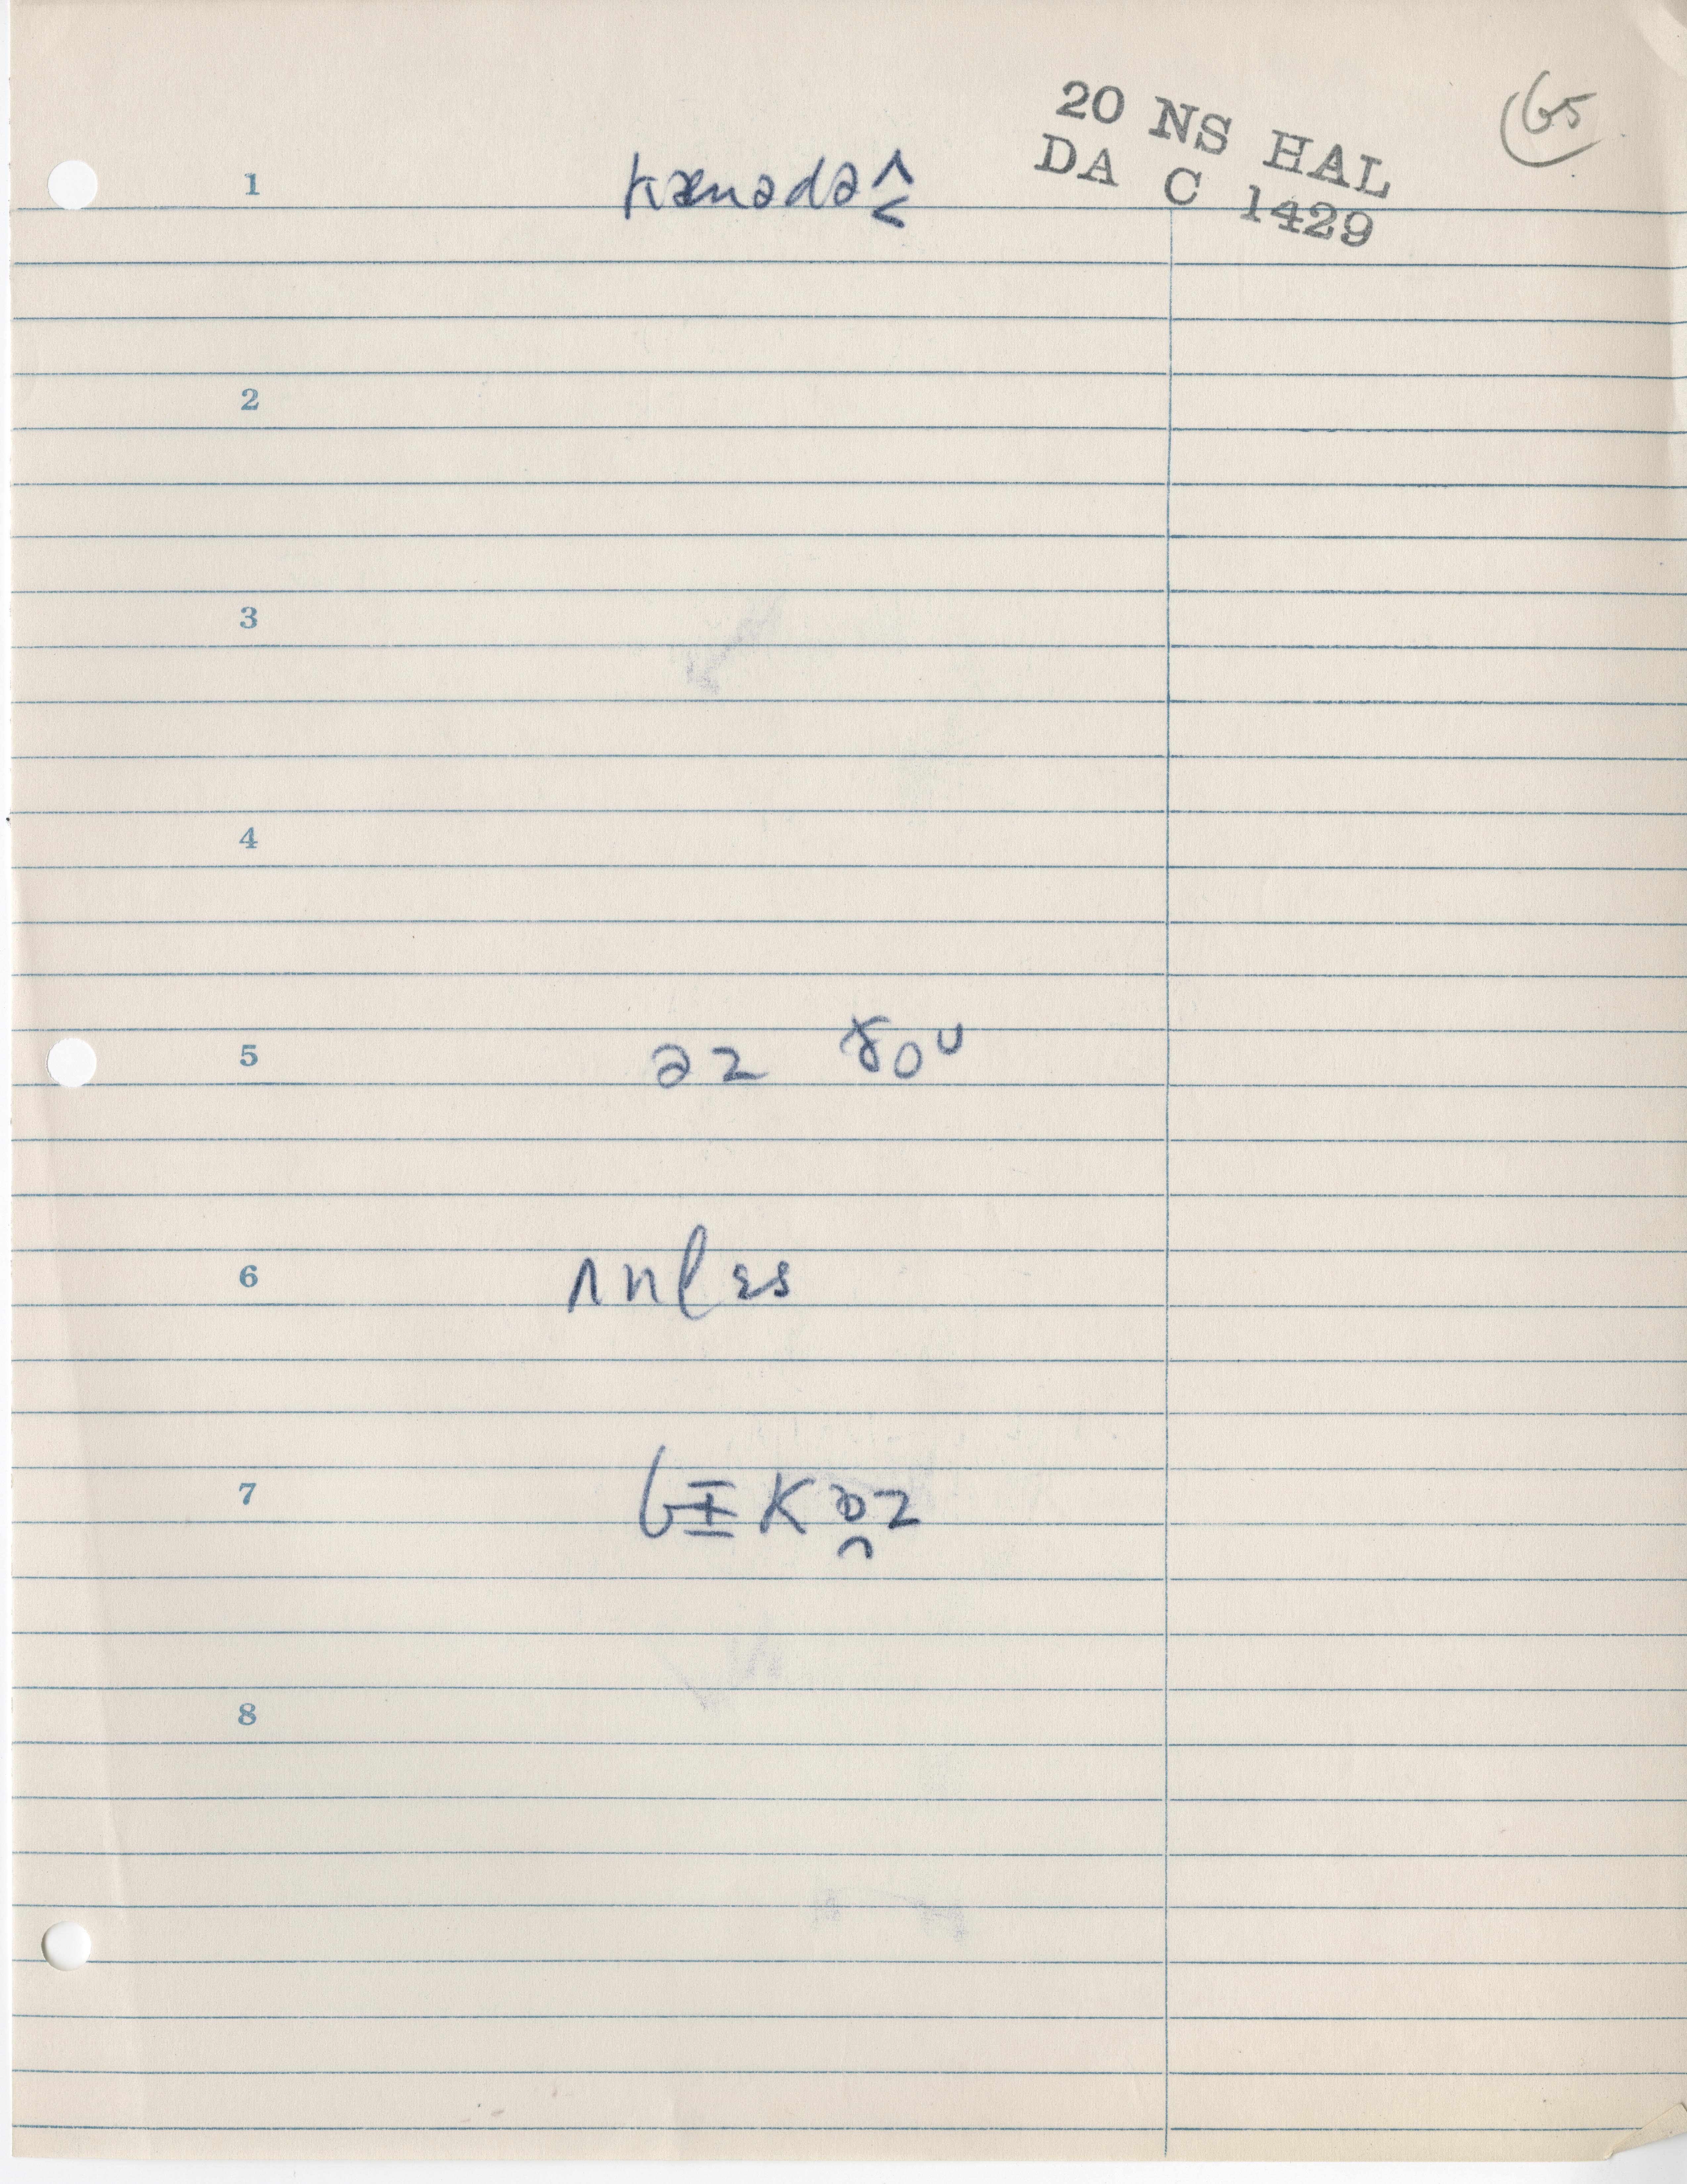 20 NS HAL
DA C 1429
65
1 kænədə^<
2
3
4
5 əz ɤoᴜ
6 ʌnlɛs
7 bɪkɒz
8